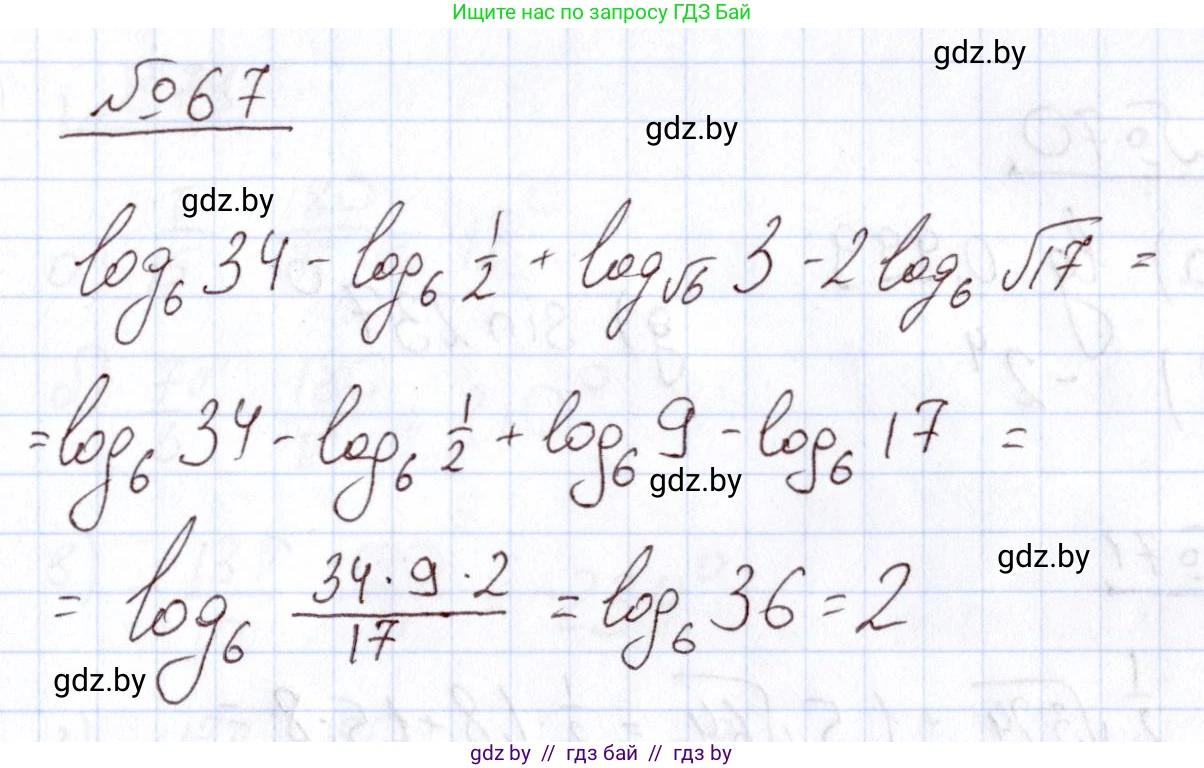 Ищите нас по запросу ГДЗ Бай
gdz.by
№ 67
gdz.by
gdz.by
log₆ 34 - log₆ 1/2 + log_√6 3 - 2 log₆ √17 =
= log₆ 34 - log₆ 1/2 + log₆ 9 - log₆ 17 =
gdz.by
gdz.by
= log₆ (34 · 9 · 2)/17 = log₆ 36 = 2
gdz.by
gdz.by // гдз бай // гдз by